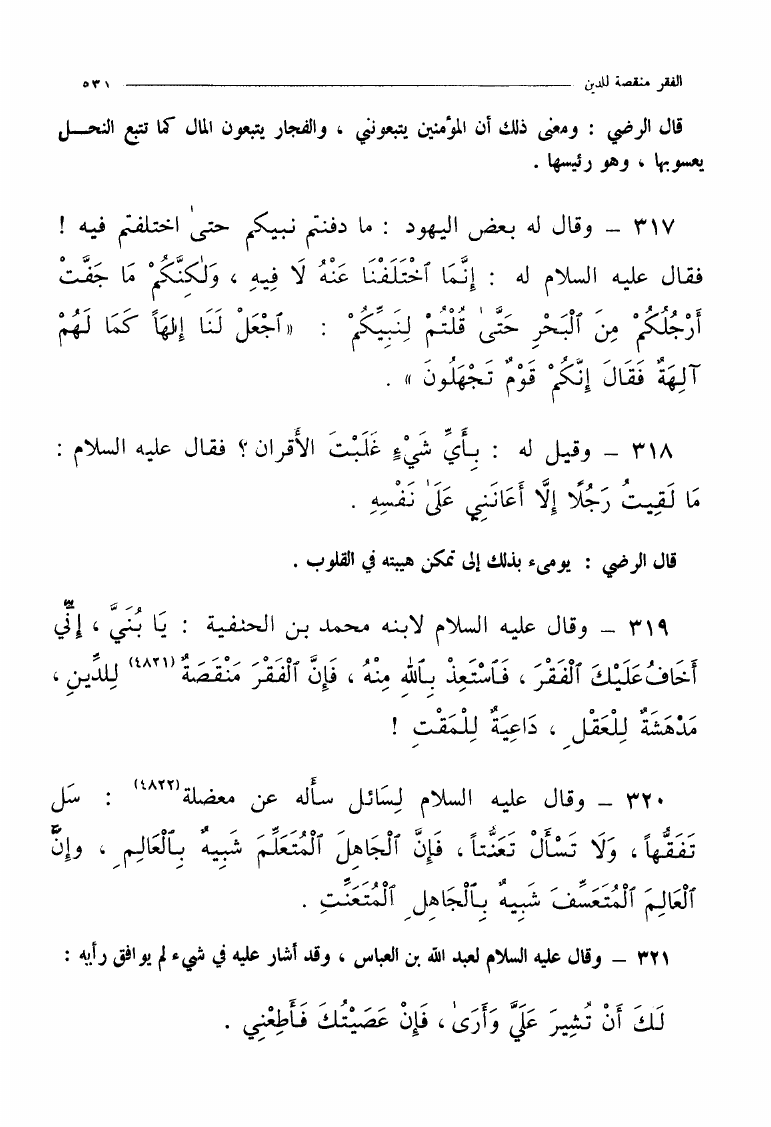 الفقر منقصة للدين ـــــــــــــــــ ٥٣١
قال الرضي : ومعنى ذلك أن المؤمنين يتبعونني ، والفجار يتبعون المال كما تتبع النحـــل
يعسوبها ، وهو رئيسها .
٣١٧ – وقال له بعض اليهود : ما دفنتم نبيكم حتىٰ اختلفتم فيه !
فقال عليه السلام له : إِنَّمَا ٱخْتَلَفْنَا عَنْهُ لَا فِيهِ ، وَلٰكِنَّكُمْ مَا جَفَّتْ
أَرْجُلُكُمْ مِنَ ٱلْبَحْرِ حَتَّىٰ قُلْتُمْ لِنَبِيِّكُمْ : «ٱجْعَلْ لَنَا إِلٰهَاً كَمَا لَهُمْ
آلِهَةٌ فَقَالَ إِنَّكُمْ قَوْمٌ تَجْهَلُونَ » .
٣١٨ – وقيل له : بِأَيِّ شَيْءٍ غَلَبْتَ الأَقران ؟ فقال عليه السلام :
مَا لَقِيتُ رَجُلًا إِلَّا أَعَانَنِي عَلَىٰ نَفْسِهِ .
قال الرضي : يومىء بذلك إلى تمكن هيبته في القلوب .
٣١٩ – وقال عليه السلام لابنه محمد بن الحنفية : يَا بُنَيَّ ، إِنِّي
أَخَافُ عَلَيْكَ ٱلْفَقْرَ ، فَٱسْتَعِذْ بِٱللهِ مِنْهُ ، فَإِنَّ ٱلْفَقْرَ مَنْقَصَةٌ (٤٨٢١) لِلدِّينِ ،
مَدْهَشَةٌ لِلْعَقْلِ ، دَاعِيَةٌ لِلْمَقْتِ !
٣٢٠ – وقال عليه السلام لِسَائل سأَله عن معضلة (٤٨٢٢) : سَل
تَفَقُّهاً ، وَلَا تَسْأَلْ تَعَنُّتاً ، فَإِنَّ ٱلْجَاهِلَ ٱلْمُتَعَلِّمَ شَبِيهٌ بِٱلْعَالِمِ ، وإِنَّ
ٱلْعَالِمَ ٱلْمُتَعَسِّفَ شَبِيهٌ بِٱلْجَاهِلِ ٱلْمُتَعَنِّتِ .
٣٢١ – وقال عليه السلام لعبد الله بن العباس ، وقد أشار عليه في شيء لم يوافق رأيه :
لَكَ أَنْ تُشِيرَ عَلَيَّ وَأَرَىٰ ، فَإِنْ عَصَيْتُكَ فَأَطِعْنِي .